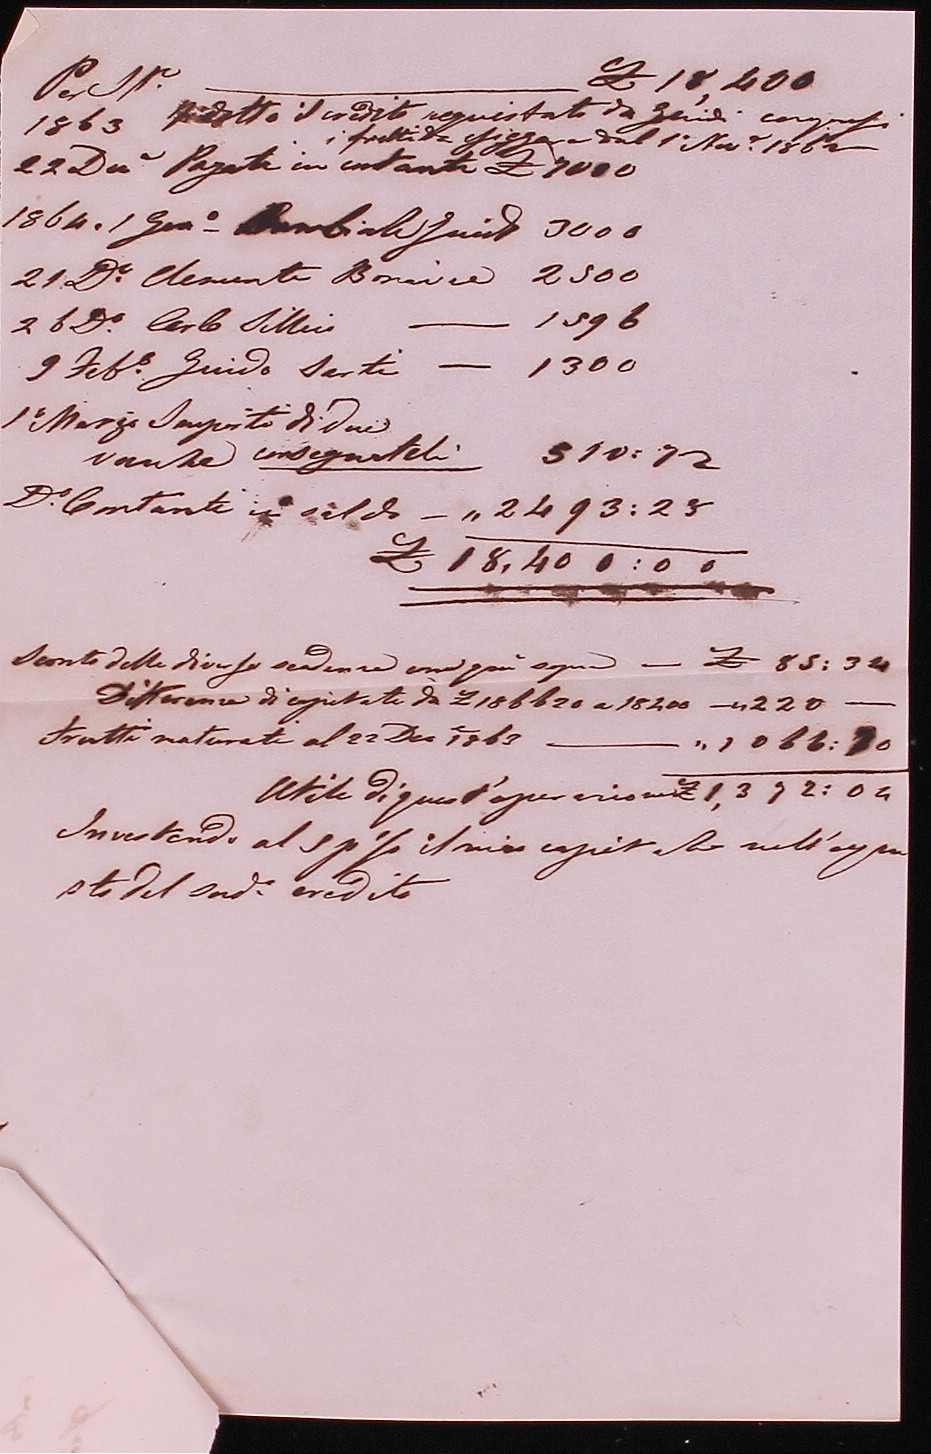 Per St. £ 18,400
1863 ridotto il credito acquistato da Guidi compresi
i frutti da esiggere dal 1° Nov.e 1862
22 Dec.e Pagati in contante £ 7000
1864. 1 Gen.o Cambiale Guidi 3000
21 D.o Clemente 2500
26 D.o Carlo 1596
9 Feb.o Guido Sarti — 1300
1° Marzo Importo di due
vanhe consegnateli 510:72
D.o Contanti in saldo — „ 2493:28
£ 18,400:00
Sconto delle diverse scadenze come più sopra — £ 85:34
Differenza di capitale da £ 18620 a 18400 — „ 220 —
Frutti maturati al 22 Dec.e 1863 — „ 1066:70
Utile di quest'operazione £ 1,372:04
Investendo al 5 p% il mio capitale nell'acqui
sto del sud.o credito